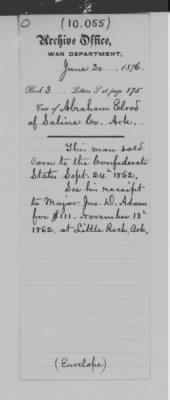 (10.055)
Archive Office,
WAR DEPARTMENT,
June 30, 1876.
Book 3 Letters S at page 175
Case of Abraham Elrod
of Saline Co. Ark.
This man sold
corn to the Confederate
States Sept. 24th 1862.
See his receipt
to Major Jno. D. Adams
for $111. November 13th
1862, at Little Rock, Ark.
(Envelope)